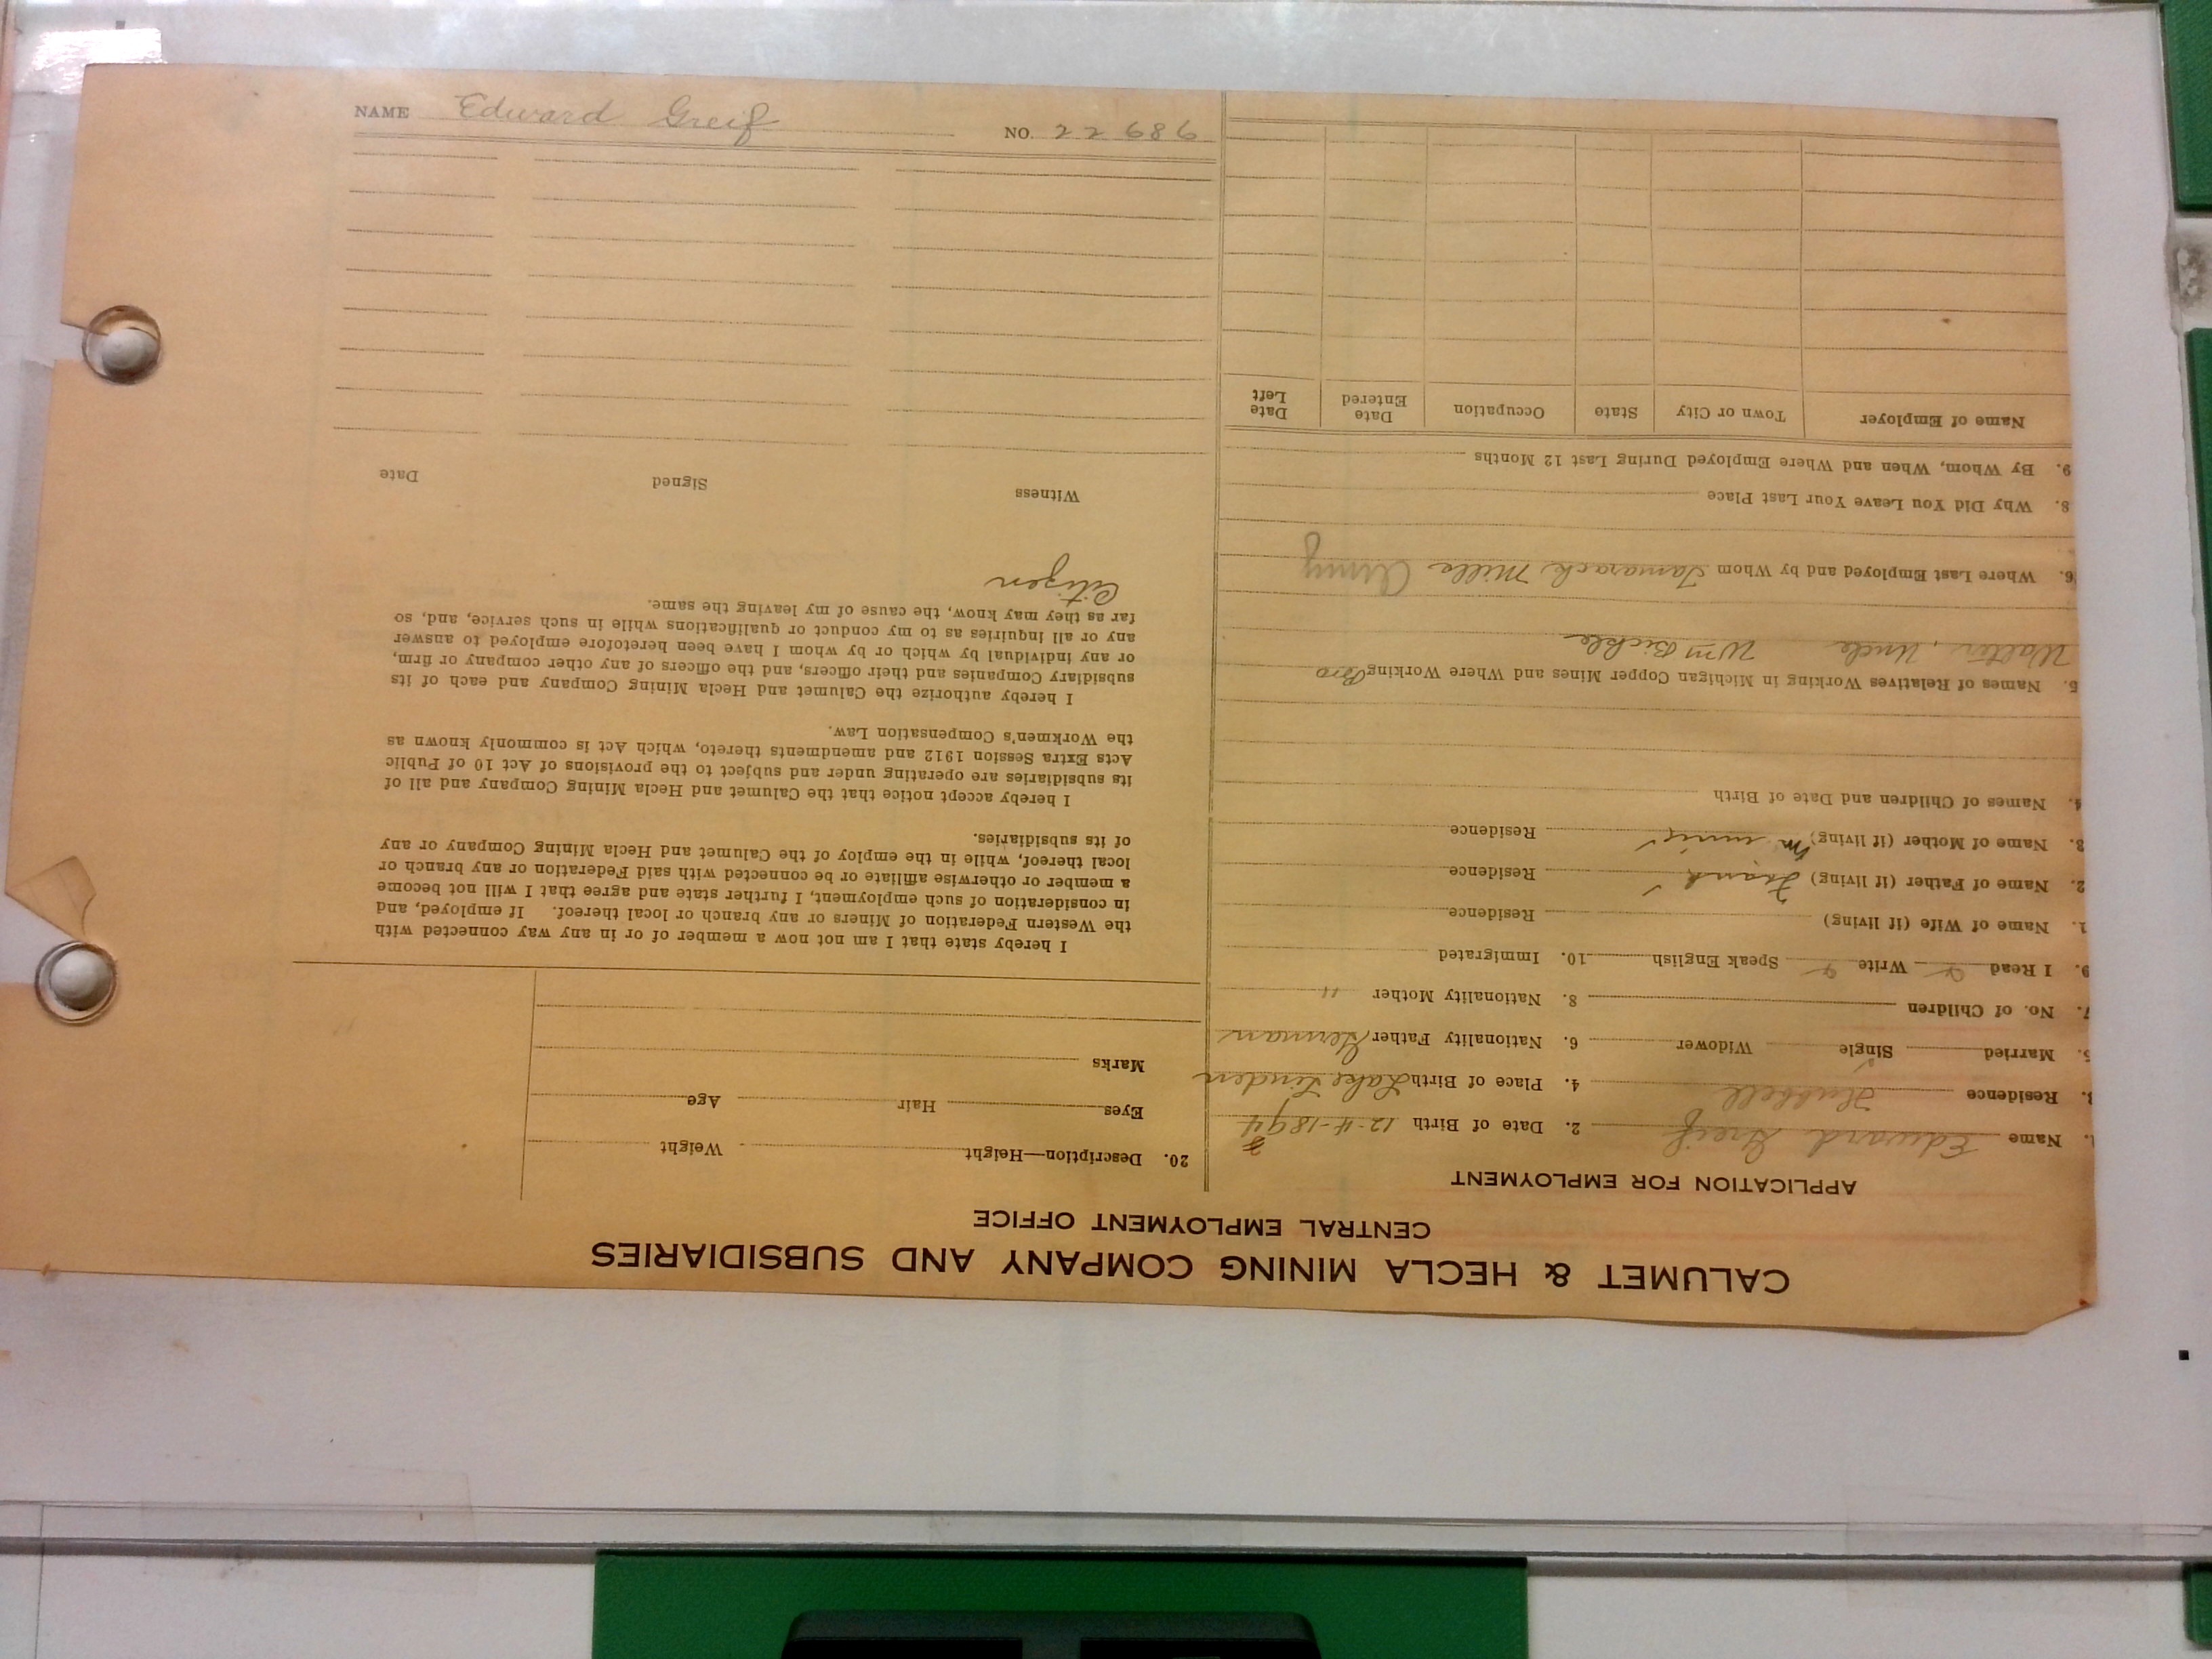 CALUMET & HECLA MINING COMPANY AND SUBSIDIARIES
CENTRAL EMPLOYMENT OFFICE
APPLICATION FOR EMPLOYMENT
1. Name Edward Greif 2. Date of Birth 12-4-1894
3. Residence Hubbell 4. Place of Birth Lake Linden
5. Married Single Widower 6. Nationality Father German
7. No. of Children 8. Nationality Mother "
9. I Read Write Speak English 10. Immigrated
1. Name of Wife (if living) Residence
2. Name of Father (if living) Frank Residence
3. Name of Mother (if living) Residence
4. Names of Children and Date of Birth
5. Names of Relatives Working in Michigan Copper Mines and Where Working Bro
Walter, Uncle Wm Bickle
6. Where Last Employed and by Whom Tamarack Mills Army
8. Why Did You Leave Your Last Place
9. By Whom, When and Where Employed During Last 12 Months
Name of Employer Town or City State Occupation Date Entered Date Left
20. Description—Height Weight
Eyes Hair Age
Marks
I hereby state that I am not now a member of or in any way connected with
the Western Federation of Miners or any branch or local thereof. If employed, and
in consideration of such employment, I further state and agree that I will not become
a member or otherwise affiliate or be connected with said Federation or any branch or
local thereof, while in the employ of the Calumet and Hecla Mining Company or any
of its subsidiaries.
I hereby accept notice that the Calumet and Hecla Mining Company and all of
its subsidiaries are operating under and subject to the provisions of Act 10 of Public
Acts Extra Session 1912 and amendments thereto, which Act is commonly known as
the Workmen's Compensation Law.
I hereby authorize the Calumet and Hecla Mining Company and each of its
subsidiary Companies and their officers, and the officers of any other company or firm,
or any individual by which or by whom I have been heretofore employed to answer
any or all inquiries as to my conduct or qualifications while in such service, and, so
far as they may know, the cause of my leaving the same.
Citizen
Witness Signed Date
NAME Edward Greif NO. 22686